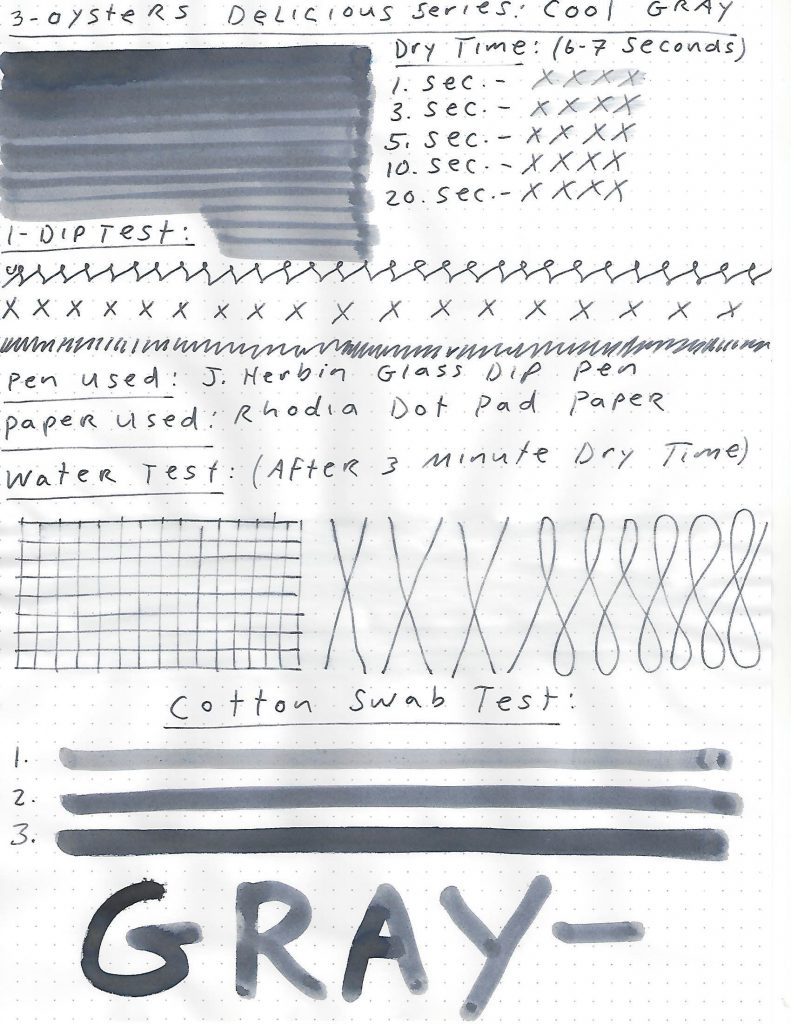 3-oysters Delicious Series: Cool Gray
Dry Time: (6-7 seconds)
1. sec. - X X X X
3. sec. - X X X X
5. sec. - X X X X
10. sec. - X X X X
20. sec. - X X X X
1-Dip Test:
X X X X X X X X X X X X X X X X X
Pen Used: J. Herbin Glass Dip Pen
Paper Used: Rhodia Dot Pad Paper
Water Test: (After 3 minute Dry Time)
Cotton Swab Test:
1.
2.
3.
GRAY-